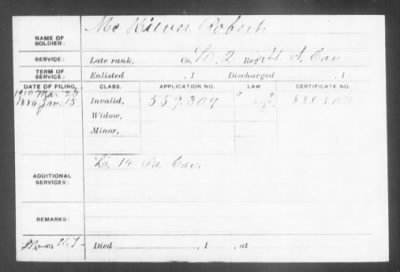 NAME OF SOLDIER: Mc Kiever Robert
SERVICE: Late rank, Co. D, 2 Reg't U. S. Cav
TERM OF SERVICE: Enlisted , 1 Discharged , 1
DATE OF FILING. CLASS. APPLICATION NO. LAW. CERTIFICATE NO.
1910 Mar
1886 Jan. 15 Invalid, 557,309
Widow,
Minor,
ADDITIONAL SERVICES: 14 Pa. Cav.
REMARKS:
Died , 1 , at